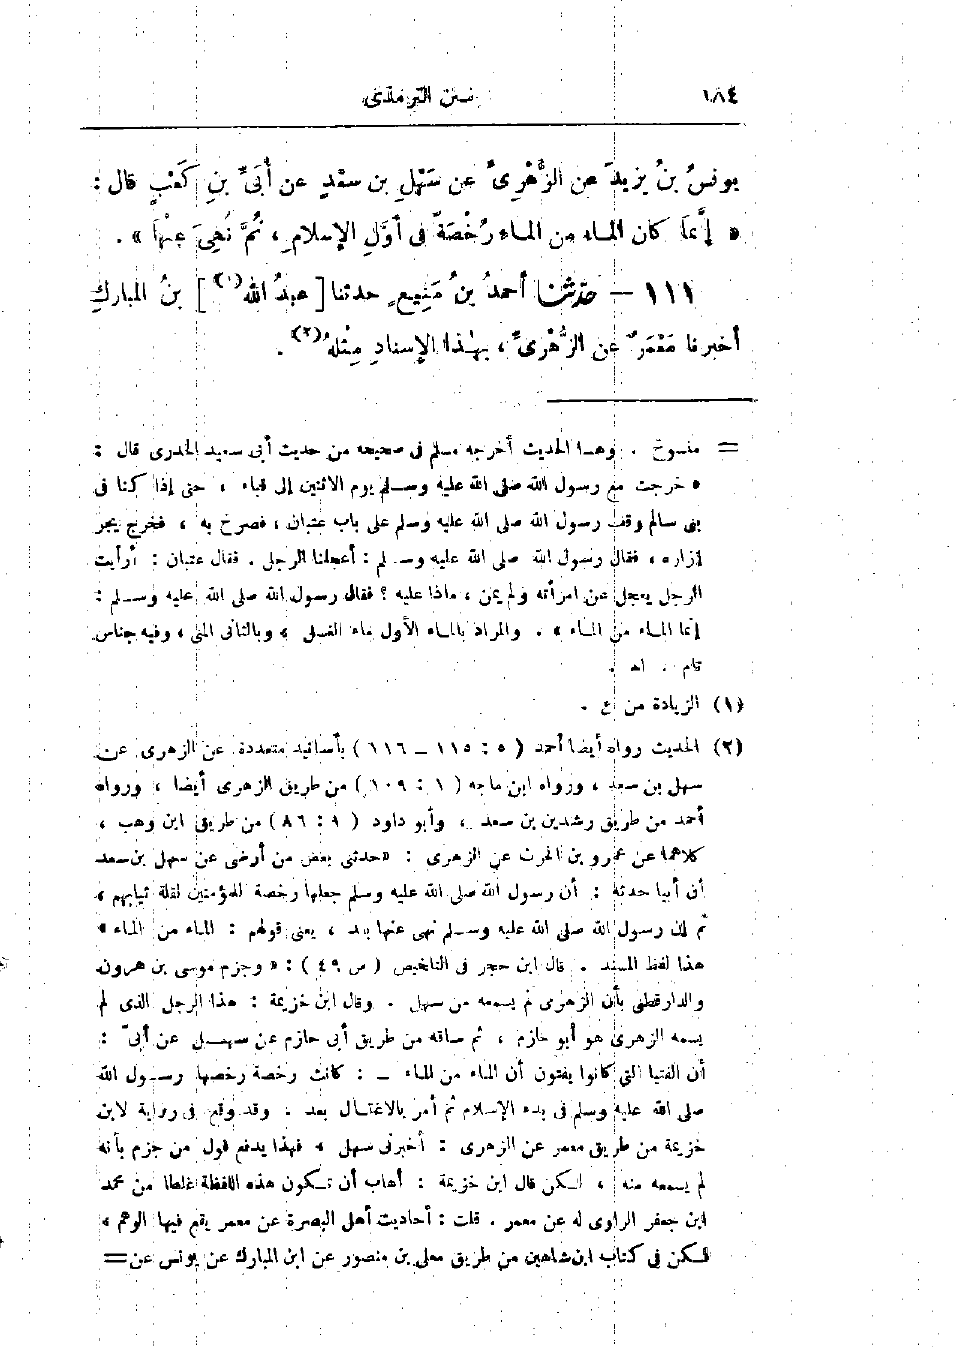 ١٨٤
سنن الترمذى
يونسُ بنُ يزيدَ عن الزُّهْرِىِّ عن سَهْلِ بن سعْدٍ عن أُبَىِّ بنِ كَعْبٍ قال :
« إنَّما كان الماء من الماء رُخْصَةً فى أوَّلِ الإسلامِ ، ثُمَّ نُهِىَ عنْهَا » .
١١١ — حَدَّثَنَا أحمدُ بنُ مَنِيعٍ حدثنا [ عبدُ الله (١) ] بنُ المباركِ
أخبرنا مَعْمَرٌ عن الزُّهْرِىِّ ، بهٰذا الإسنادِ مِثْلهُ (٢) .
= منسوخ . وهذا الحديث أخرجه مسلم فى صحيحه من حديث أبى سعيد الخدرى قال :
« خرجت مع رسول الله صلى الله عليه وسلم يوم الاثنين إلى قباء ، حتى إذا كنا فى
بنى سالم وقف رسول الله صلى الله عليه وسلم على باب عتبان ، فصرخ به ، فخرج يجر
إزاره ، فقال رسول الله صلى الله عليه وسلم : أعجلنا الرجل . فقال عتبان : أرأيت
الرجل يعجل عن امرأته ولم يمن ، ماذا عليه ؟ فقال رسول الله صلى الله عليه وسلم :
إنما الماء من الماء » . والمراد بالماء الأول ماء الغسل ، وبالثانى المنى ، وفيه جناس
تام . اهـ .
(١) الزيادة من ع .
(٢) الحديث رواه أيضا أحمد ( ٥ : ١١٥ — ١١٦ ) بأسانيد متعددة عن الزهرى عن
سهل بن سعد ، ورواه ابن ماجه ( ١ : ١٠٩ ) من طريق الزهرى أيضا ، ورواه
أحمد من طريق رشدين بن سعد ، وأبو داود ( ٩ : ٨٦ ) من طريق ابن وهب ،
كلاهما عن عمرو بن الحرث عن الزهرى : « حدثنى بعض من أرضى عن سهل بن سعد
أن أبيا حدثه : أن رسول الله صلى الله عليه وسلم جعلها رخصة للمؤمنين لقلة ثيابهم ،
ثم إن رسول الله صلى الله عليه وسلم نهى عنها بعد ، يعنى قولهم : الماء من الماء »
هذا لفظ المسند . قال ابن حجر فى التلخيص ( ص ٤٩ ) : « وجزم موسى بن هرون
والدارقطنى بأن الزهرى لم يسمعه من سهل . وقال ابن خزيمة : هذا الرجل الذى لم
يسمه الزهرى هو أبو حازم ، ثم ساقه من طريق أبى حازم عن سهل عن أبىّ :
أن الفتيا التى كانوا يفتون أن الماء من الماء — : كانت رخصة رخصها رسول الله
صلى الله عليه وسلم فى بدء الإسلام ثم أمر بالاغتسال بعد . وقد وقع فى رواية لابن
خزيمة من طريق معمر عن الزهرى : أخبرنى سهل ، فهذا يدفع قول من جزم بأنه
لم يسمعه منه ، لكن قال ابن خزيمة : أهاب أن تكون هذه اللفظة غلطا من محمد
ابن جعفر الراوى له عن معمر . قلت : أحاديث أهل البصرة عن معمر يقع فيها الوهم ،
لكن فى كتاب ابن شاهين من طريق معلى بن منصور عن ابن المبارك عن يونس عن =